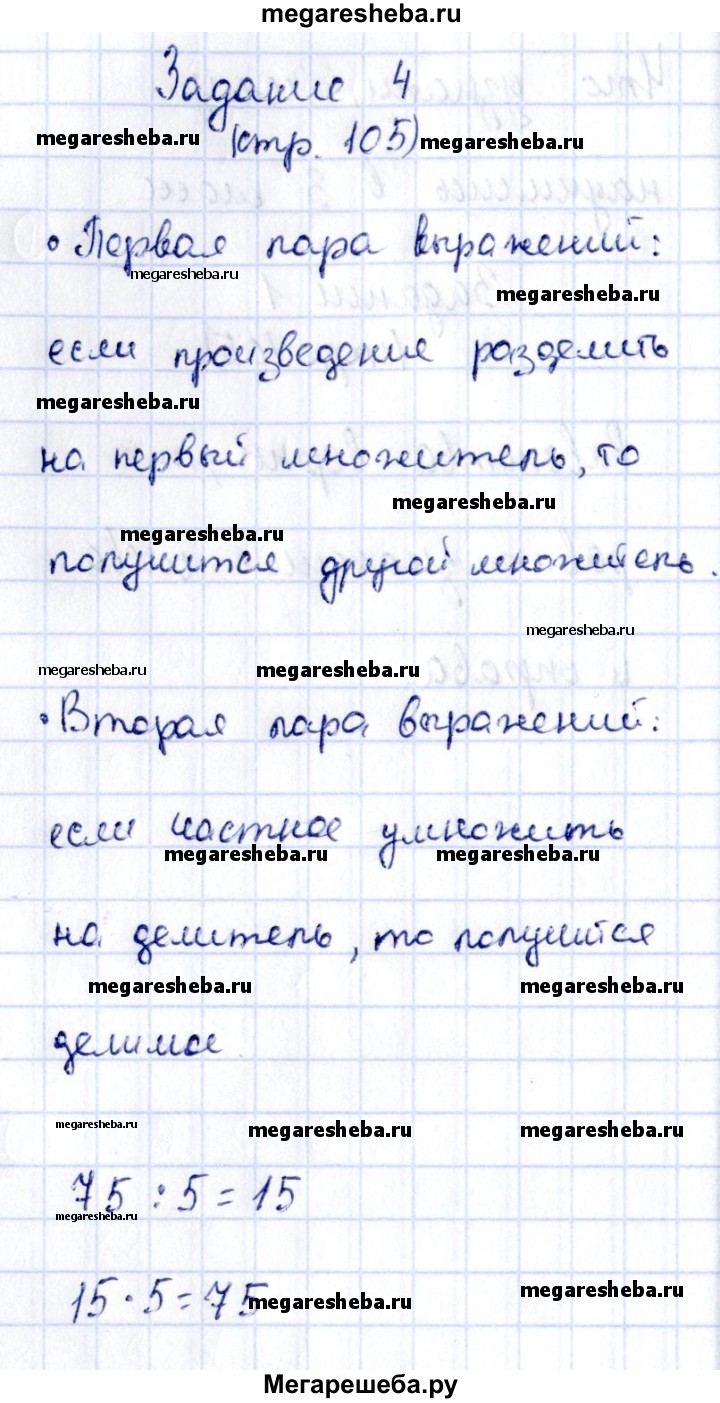 megaresheba.ru
Задание 4
megaresheba.ru (стр. 105) megaresheba.ru
• Первая пара выражений:
megaresheba.ru
megaresheba.ru
если произведение разделить
megaresheba.ru
на первый множитель, то
megaresheba.ru
megaresheba.ru
получится другой множитель.
megaresheba.ru
megaresheba.ru megaresheba.ru
• Вторая пара выражений:
если частное умножить
megaresheba.ru megaresheba.ru
на делитель, то получится
megaresheba.ru megaresheba.ru
делимое
megaresheba.ru megaresheba.ru megaresheba.ru
75 : 5 = 15
megaresheba.ru
15 · 5 = 75
megaresheba.ru megaresheba.ru
Мегарешеба.ру